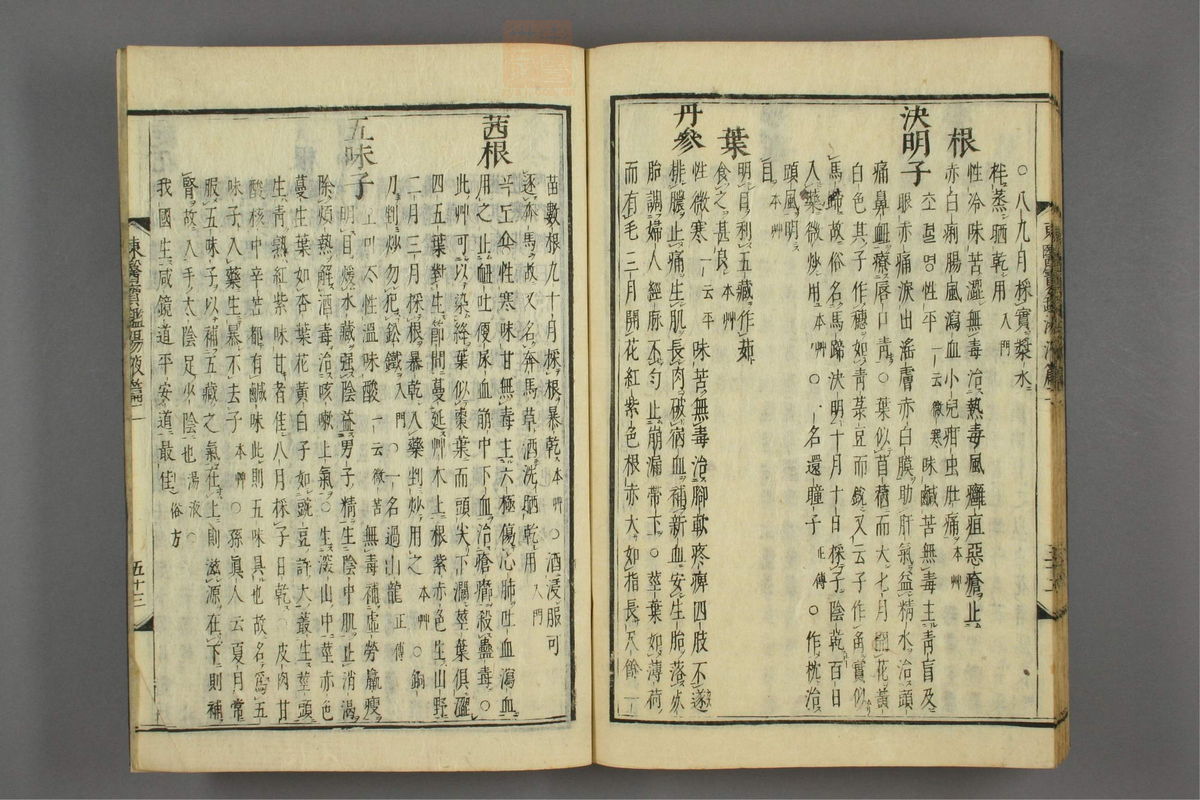 ○八九月採實漿水
拌蒸晒乾用入門
根
性冷味苦澁無毒治熱毒風癰疽惡瘡止
赤白痢腸風瀉血小兒疳虫肚痛本艸
決明子
초결명性平一云微寒味鹹苦無毒主靑盲及
眼赤痛淚出滛膚赤白膜助肝氣益精水治頭
痛鼻衄療唇口靑○葉似苜蓿而大七月開花黃
白色其子作穗如靑菉豆而銳又云子作角實似
馬蹄故俗名馬蹄決明十月十日採子陰乾百日
入藥微炒用本艸○一名還瞳子正傳○作枕治
頭風明
目本艸
葉
明目利五藏作茹
食之甚良本艸
丹參
性微寒一云平味苦無毒治脚軟疼痺四肢不遂
排膿止痛生肌長肉破宿血補新血安生胎落死
胎調婦人經脉不勻止崩漏帶下○莖葉如薄荷
而有毛三月開花紅紫色根赤大如指長尺餘一
苗數根九十月採根暴乾本艸○酒浸服可
逐奔馬故又名奔馬草酒洗晒乾用入門
茜根
性寒味甘無毒主六極傷心肺吐血瀉血
用之止衄吐便尿血崩中下血治瘡癤殺蠱毒○
此艸可以染絳葉似棗葉而頭尖下濶莖葉俱澁
四五葉對生節間蔓延艸木上根紫赤色生山野
二月三月採根暴乾入藥剉炒用之本艸○銅
刀剉炒勿犯鈆鐵入門○一名過山龍正傳
五味子
오미ᄌᆞ性溫味酸一云微苦無毒補虛勞羸瘦
明目煖水藏强陰益男子精生陰中肌止消渴
除煩熱解酒毒治咳嗽上氣○生深山中莖赤色
蔓生葉如杏葉花黃白子如豌豆許大叢生莖頭
生靑熟紅紫味甘者佳八月採子日乾○皮肉甘
酸核中辛苦都有鹹味此則五味具也故名爲五
味子入藥生暴不去子本艸○孫眞人云夏月常
服五味子以補五藏之氣在上則滋源在下則補
腎故入手太陰足少陰也湯液○
我國生咸鏡道平安道最佳俗方
東醫寶鑑湯液篇二
五十三